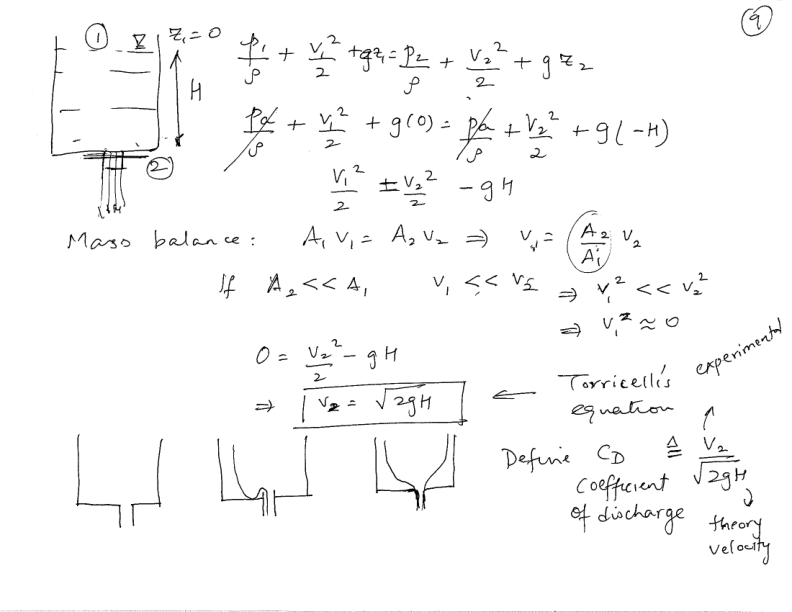 9
① ∇ z₁ = 0
H
②
p₁/ρ + v₁²/2 + gz₁ = p₂/ρ + v₂²/2 + g z₂
pa/ρ + v₁²/2 + g(0) = pa/ρ + v₂²/2 + g(-H)
v₁²/2 = v₂²/2 - gH
Mass balance: A₁ V₁ = A₂ V₂ ⇒ v₁ = (A₂/A₁) v₂
If A₂ << A₁ v₁ << v₂ ⇒ v₁² << v₂²
⇒ v₁² ≈ 0
0 = v₂²/2 - gH
⇒ v₂ = √2gH ← Torricelli's equation
experimental
Define C_D ≜ V₂/√2gH
coefficient
of discharge
theory
velocity